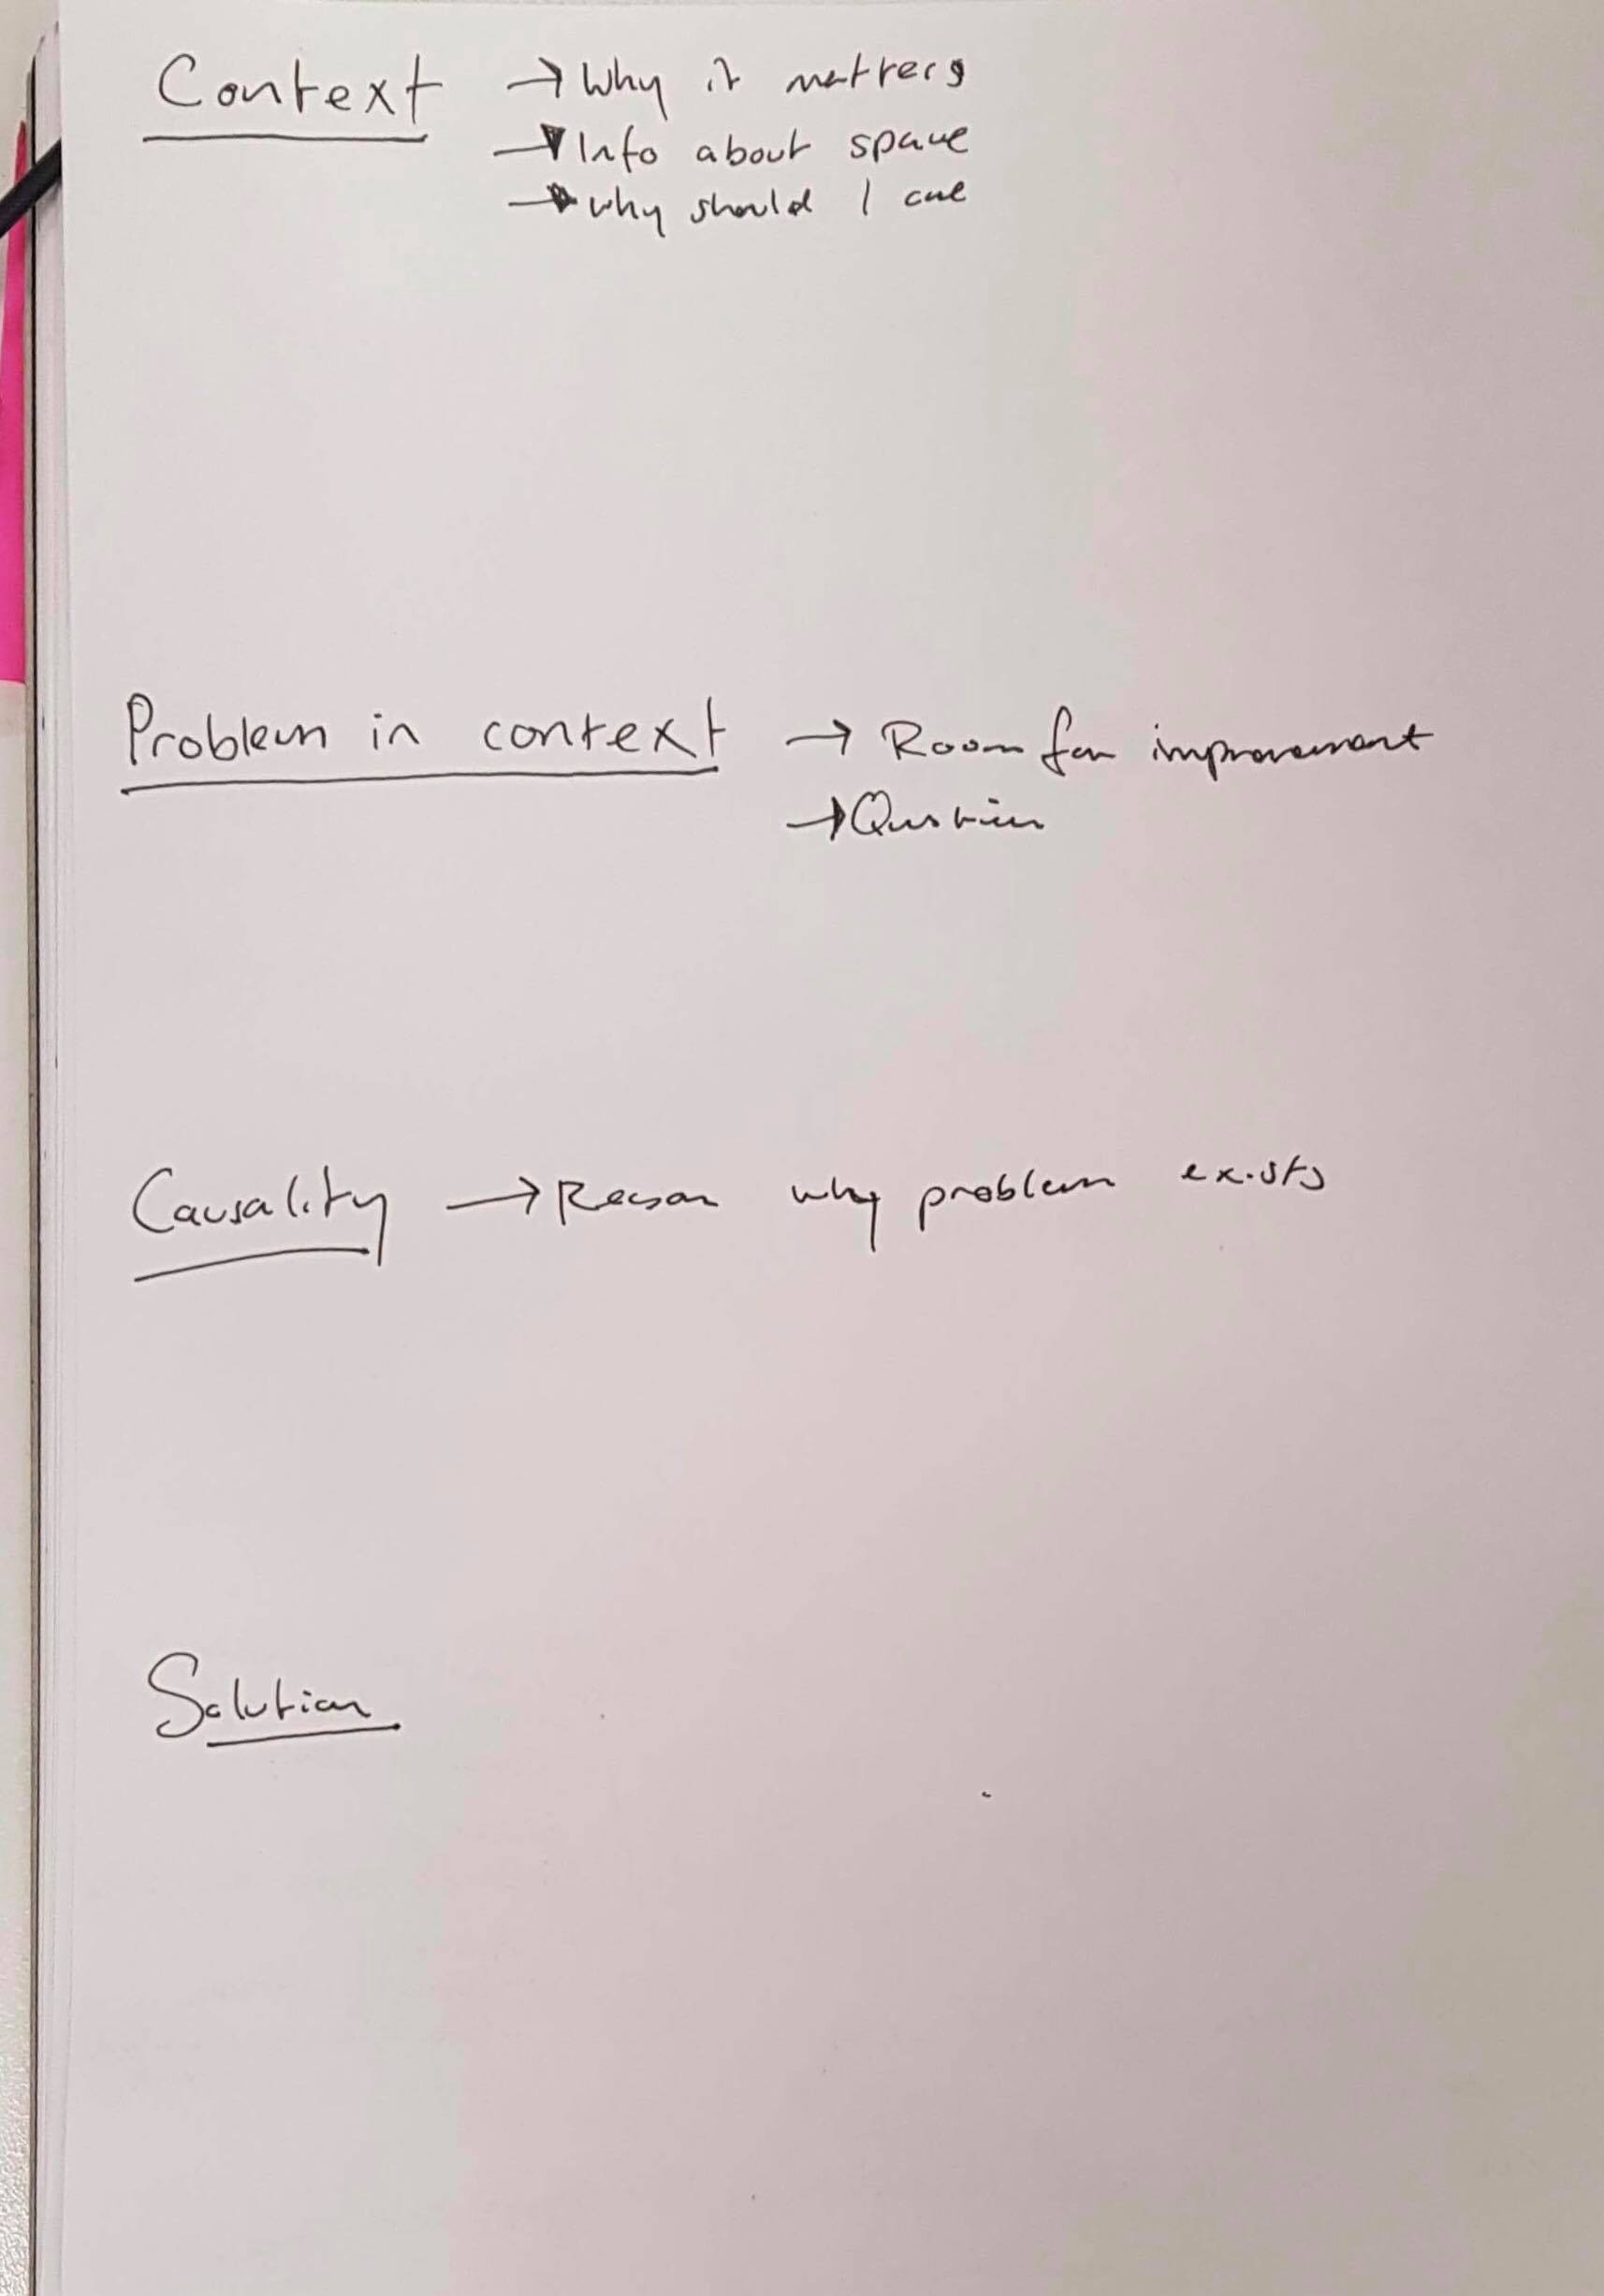 Context → Why it matters
→ Info about space
→ why should I care
Problem in context → Room for improvement
→ Question
Causality → Reason why problem exists
Solution